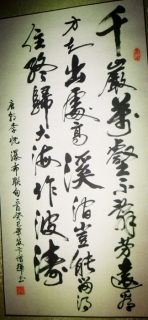 千巖萬壑不辭勞遠看
方知出處高溪澗豈能留得
住終歸大海作波濤
唐朝李忱瀑布聯句癸巳年書